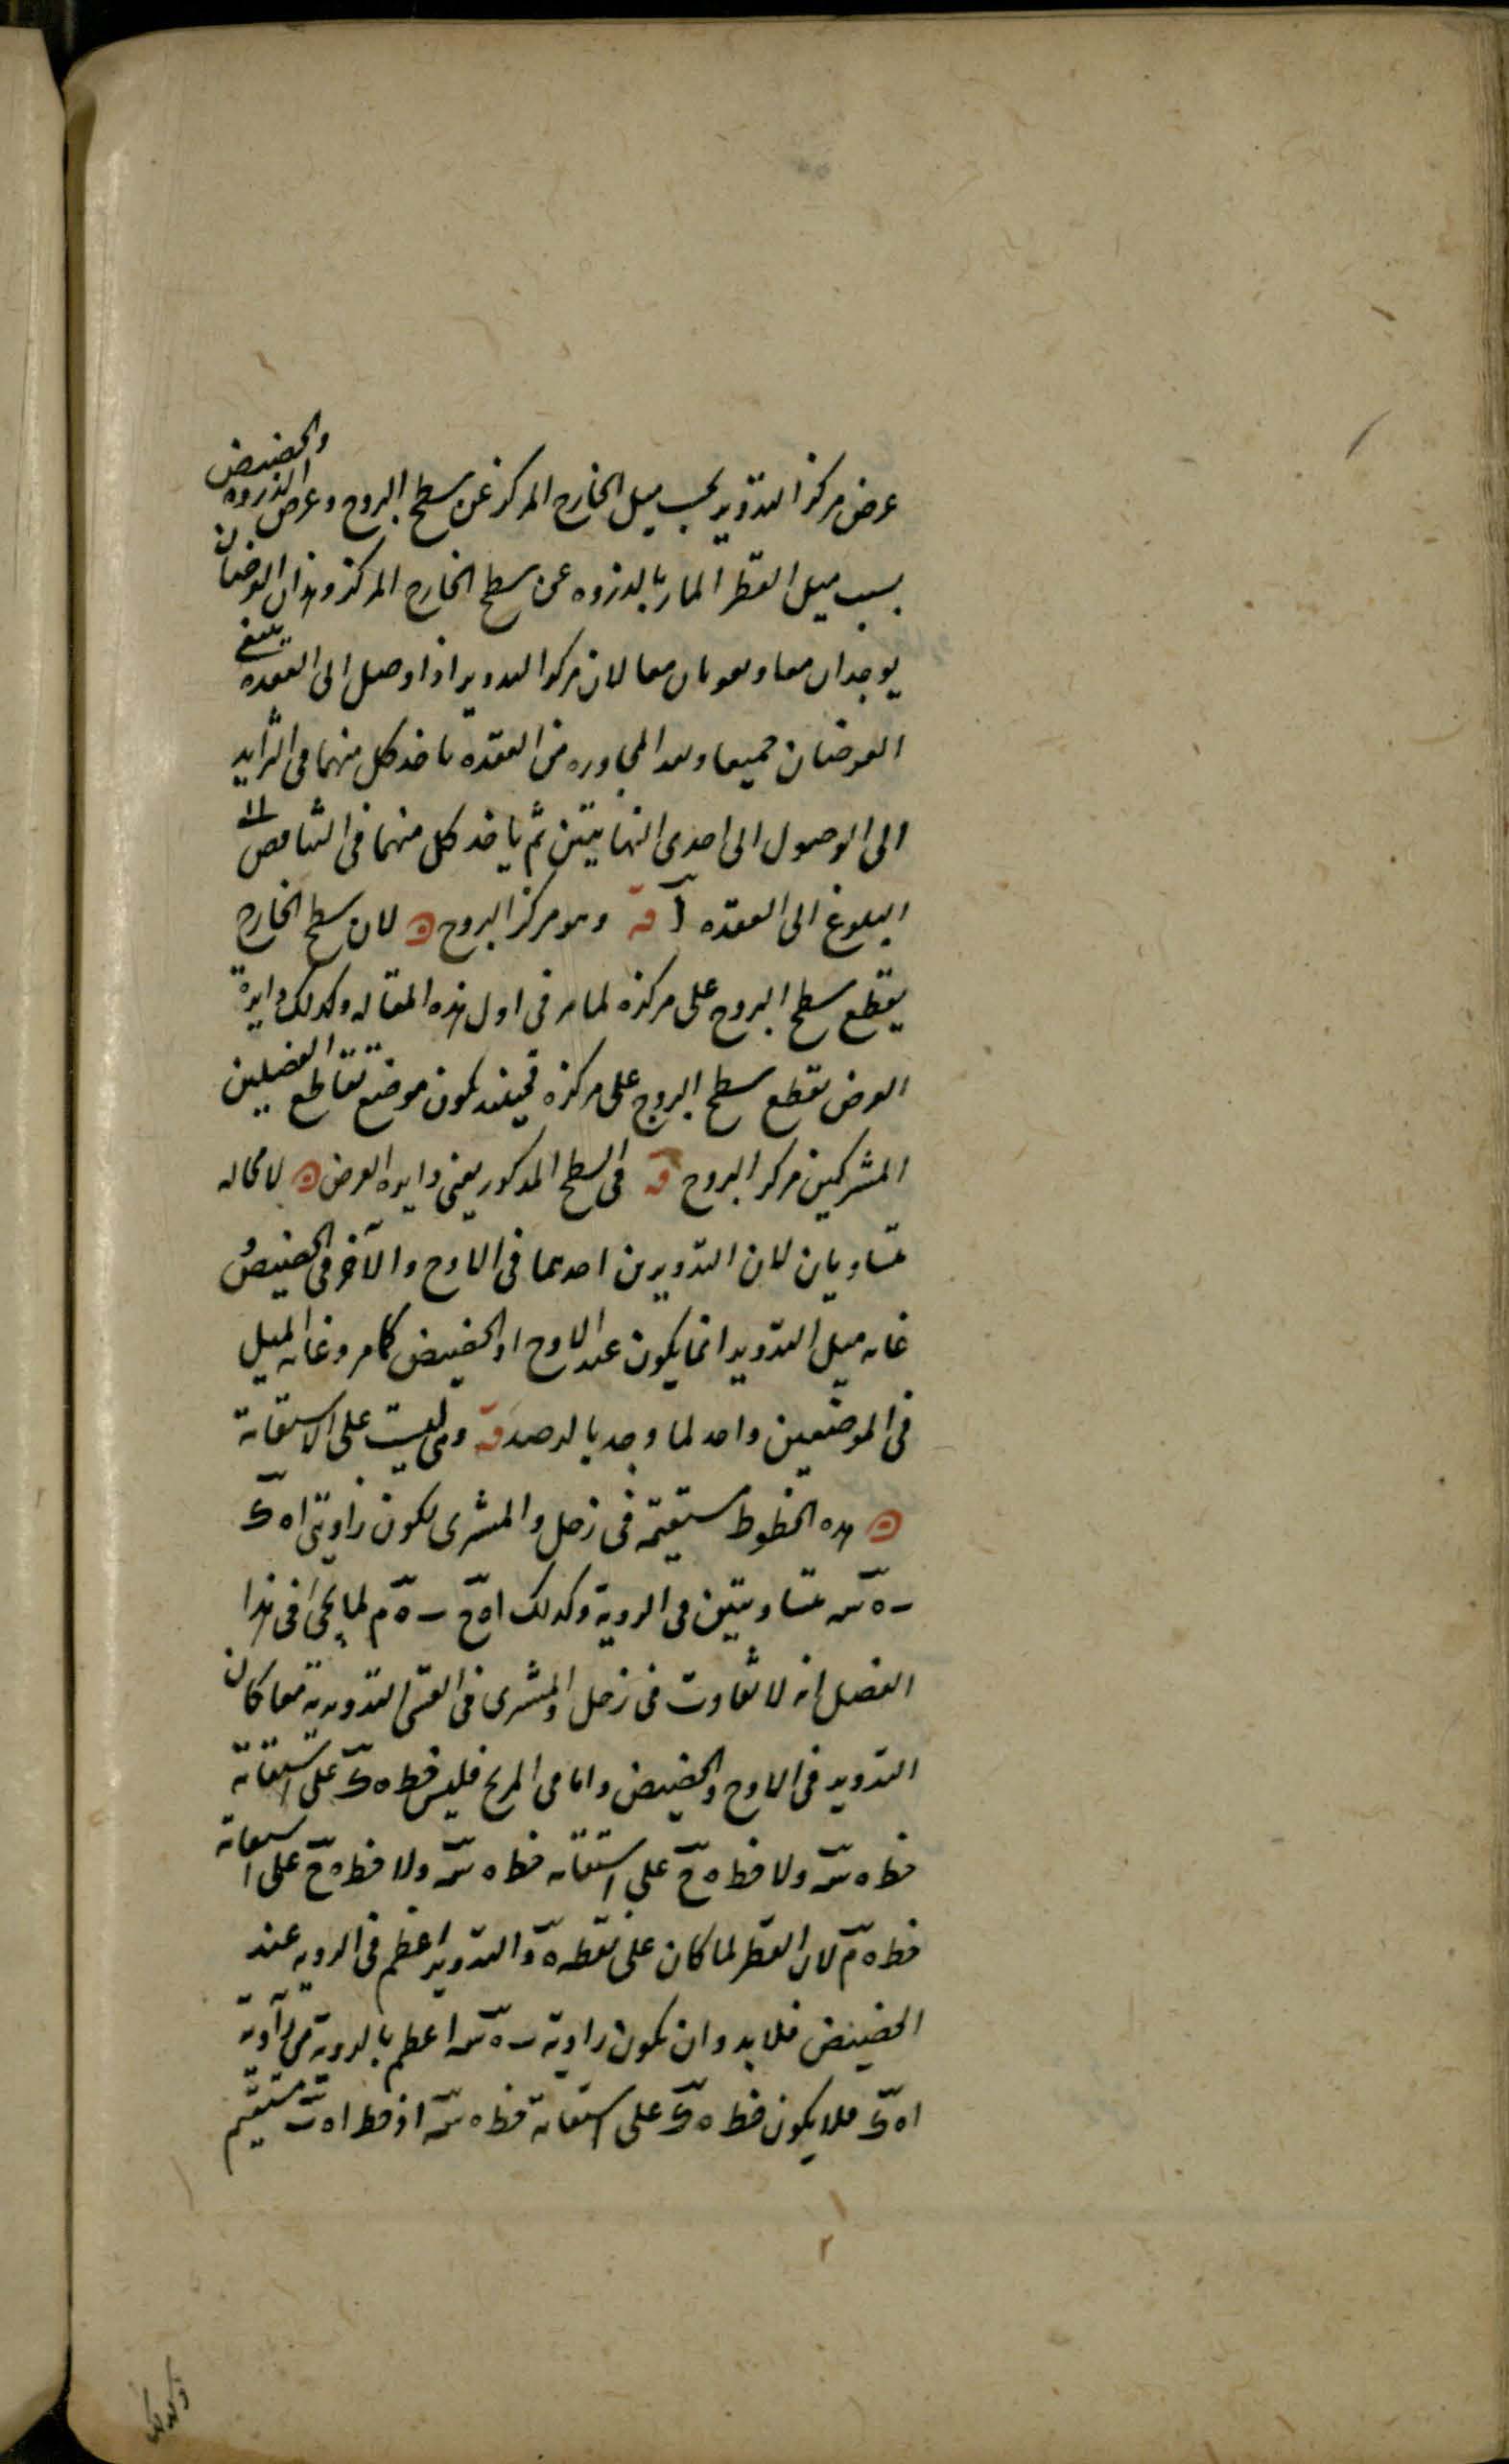 عرض مركز التدوير بحسب ميل الخارج المركز عن سطح البروج وعرض الذروه والحضيض
بسبب ميل القطر المار بالذروه عن سطح الخارج المركز وهذان العرضان
يوجدان معا ويعدمان معا لان مركز التدوير اذا وصل الى العقده ينتفى
العرضان جميعا وبعد المجاوره من العقده ياخذ كل منهما فى التزايد
الى الوصول الى احدى النهايتين ثم ياخذ كل منهما فى التناقص الى
البلوغ الى العقده قه وهو مركز البروج لان سطح الخارج
يقطع سطح البروج على مركزه لما مر فى اول هذه المقاله وكذلك دايرة
العرض يقطع سطح البروج على مركزه فحينئذ يكون موضع تقاطع الفصلين
المشتركين مركز البروج قه فى السطح المذكور يعنى دايره العرض لا محاله
متساويان لان التدويرين احدهما فى الاوج والآخر فى الحضيض و
غايه ميل التدوير انما يكون عند الاوج او الحضيض كما مر وغايه الميل
فى الموضعين واحد لما وجد بالرصد قه وهى ليست على الاستقامة
هذه الخطوط مستقيمة فى زحل والمشترى لكون زاويتى ا ه ک
ب ه س متساويتين فى الروية وكذلك ا ه ح ب ه م لما يجئ فى هذا
الفصل انه لا تفاوت فى زحل والمشترى فى القسى التدويرية معا كان
التدوير فى الاوج والحضيض واما فى المريخ فليس خط ه ک على استقامة
خط ه س ولا خط ه ح على استقامة خط ه س ولا خط ه ح على استقامة
خط ه م لان القطر لما كان على نقطة ه والتدوير اعظم فى الرويه عند
الحضيض فلا بد وان يكون زاوية ب ه س اعظم بالروية من زاوية
ا ه ک فلا يكون خط ه ک على استقامة خط ه س اذ خط ا ه ب مستقيم
وكذلك